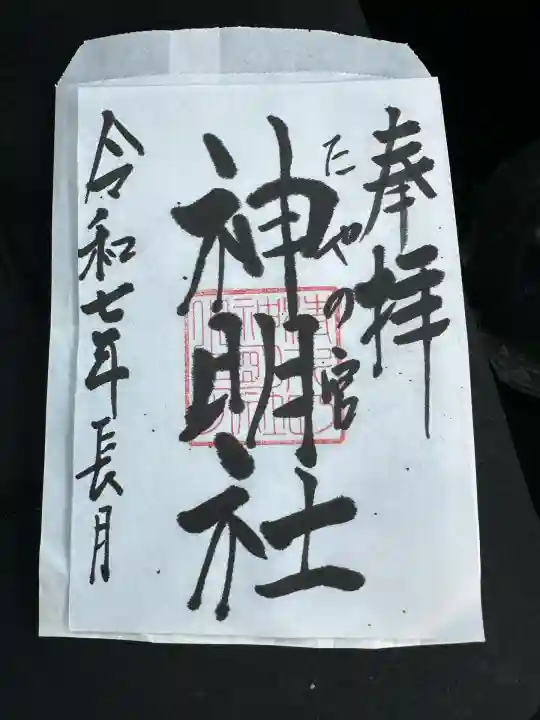 奉拝
たやの宮
神明社
令和七年長月